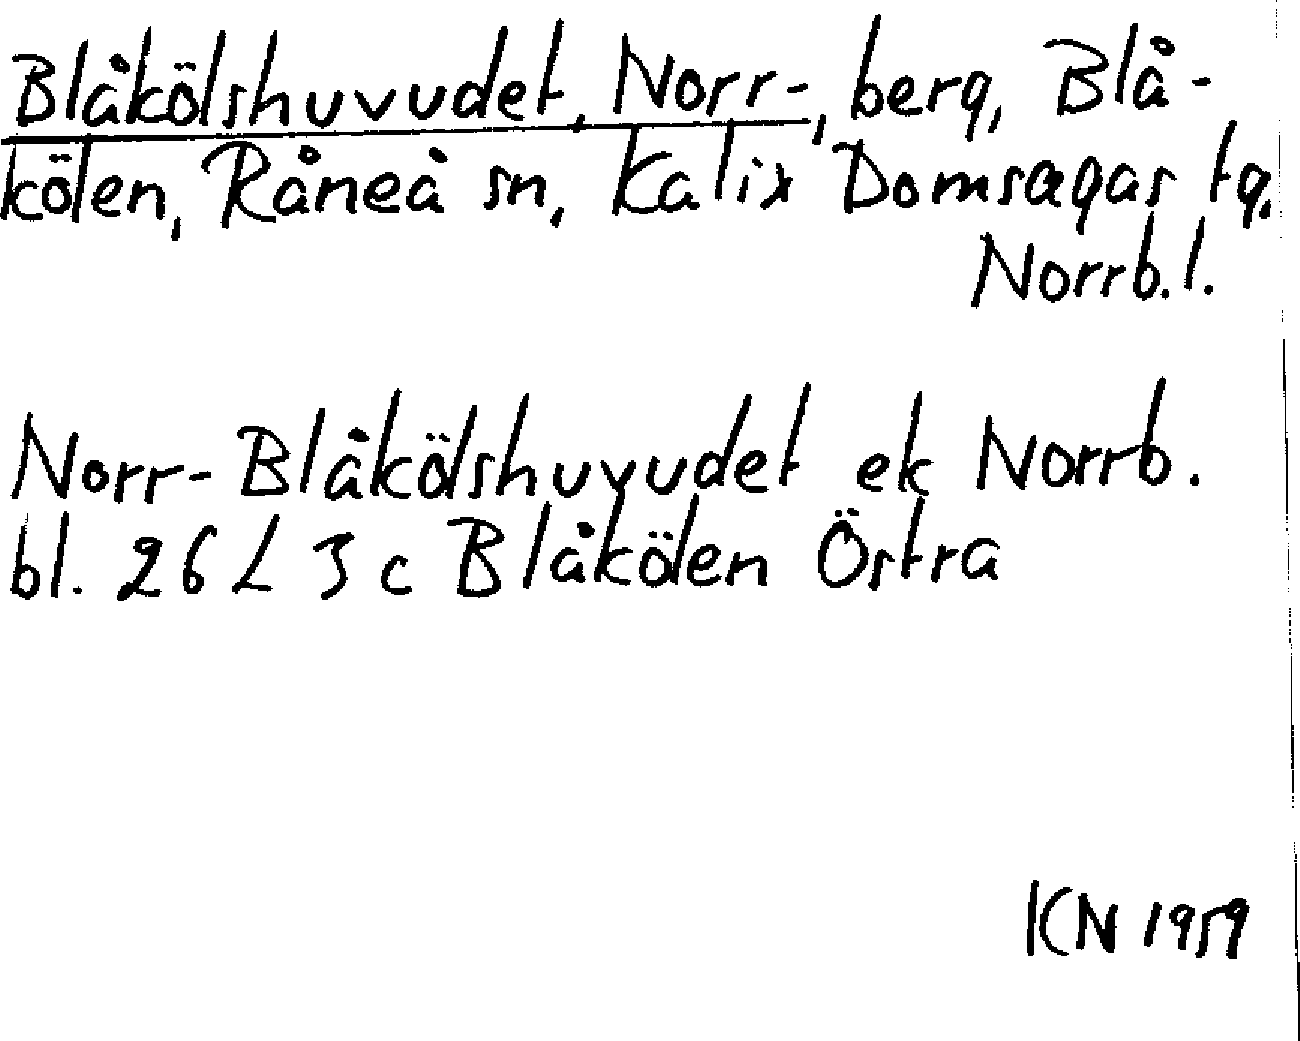 Blåkölshuvudet, Norr-, berg, Blå-
kölen, Råneå sn, Kalix Domsagas tg,
Norrb. l.
Norr-Blåkölshuvudet ek Norrb.
bl. 26 L 3 c Blåkölen Östra
KN 1959